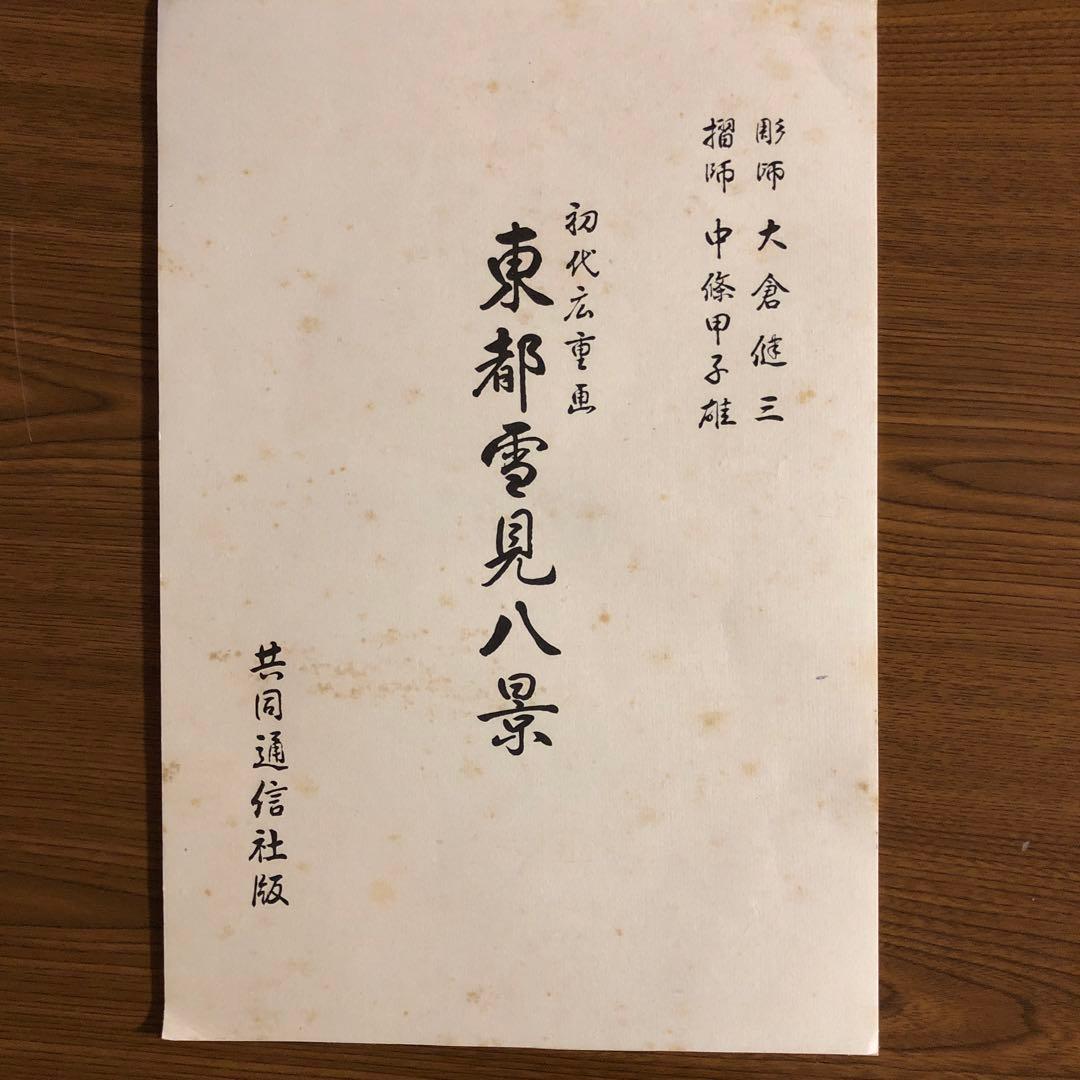 彫師 大倉健三
摺師 中條甲子雄
初代広重画
東都雪見八景
共同通信社版